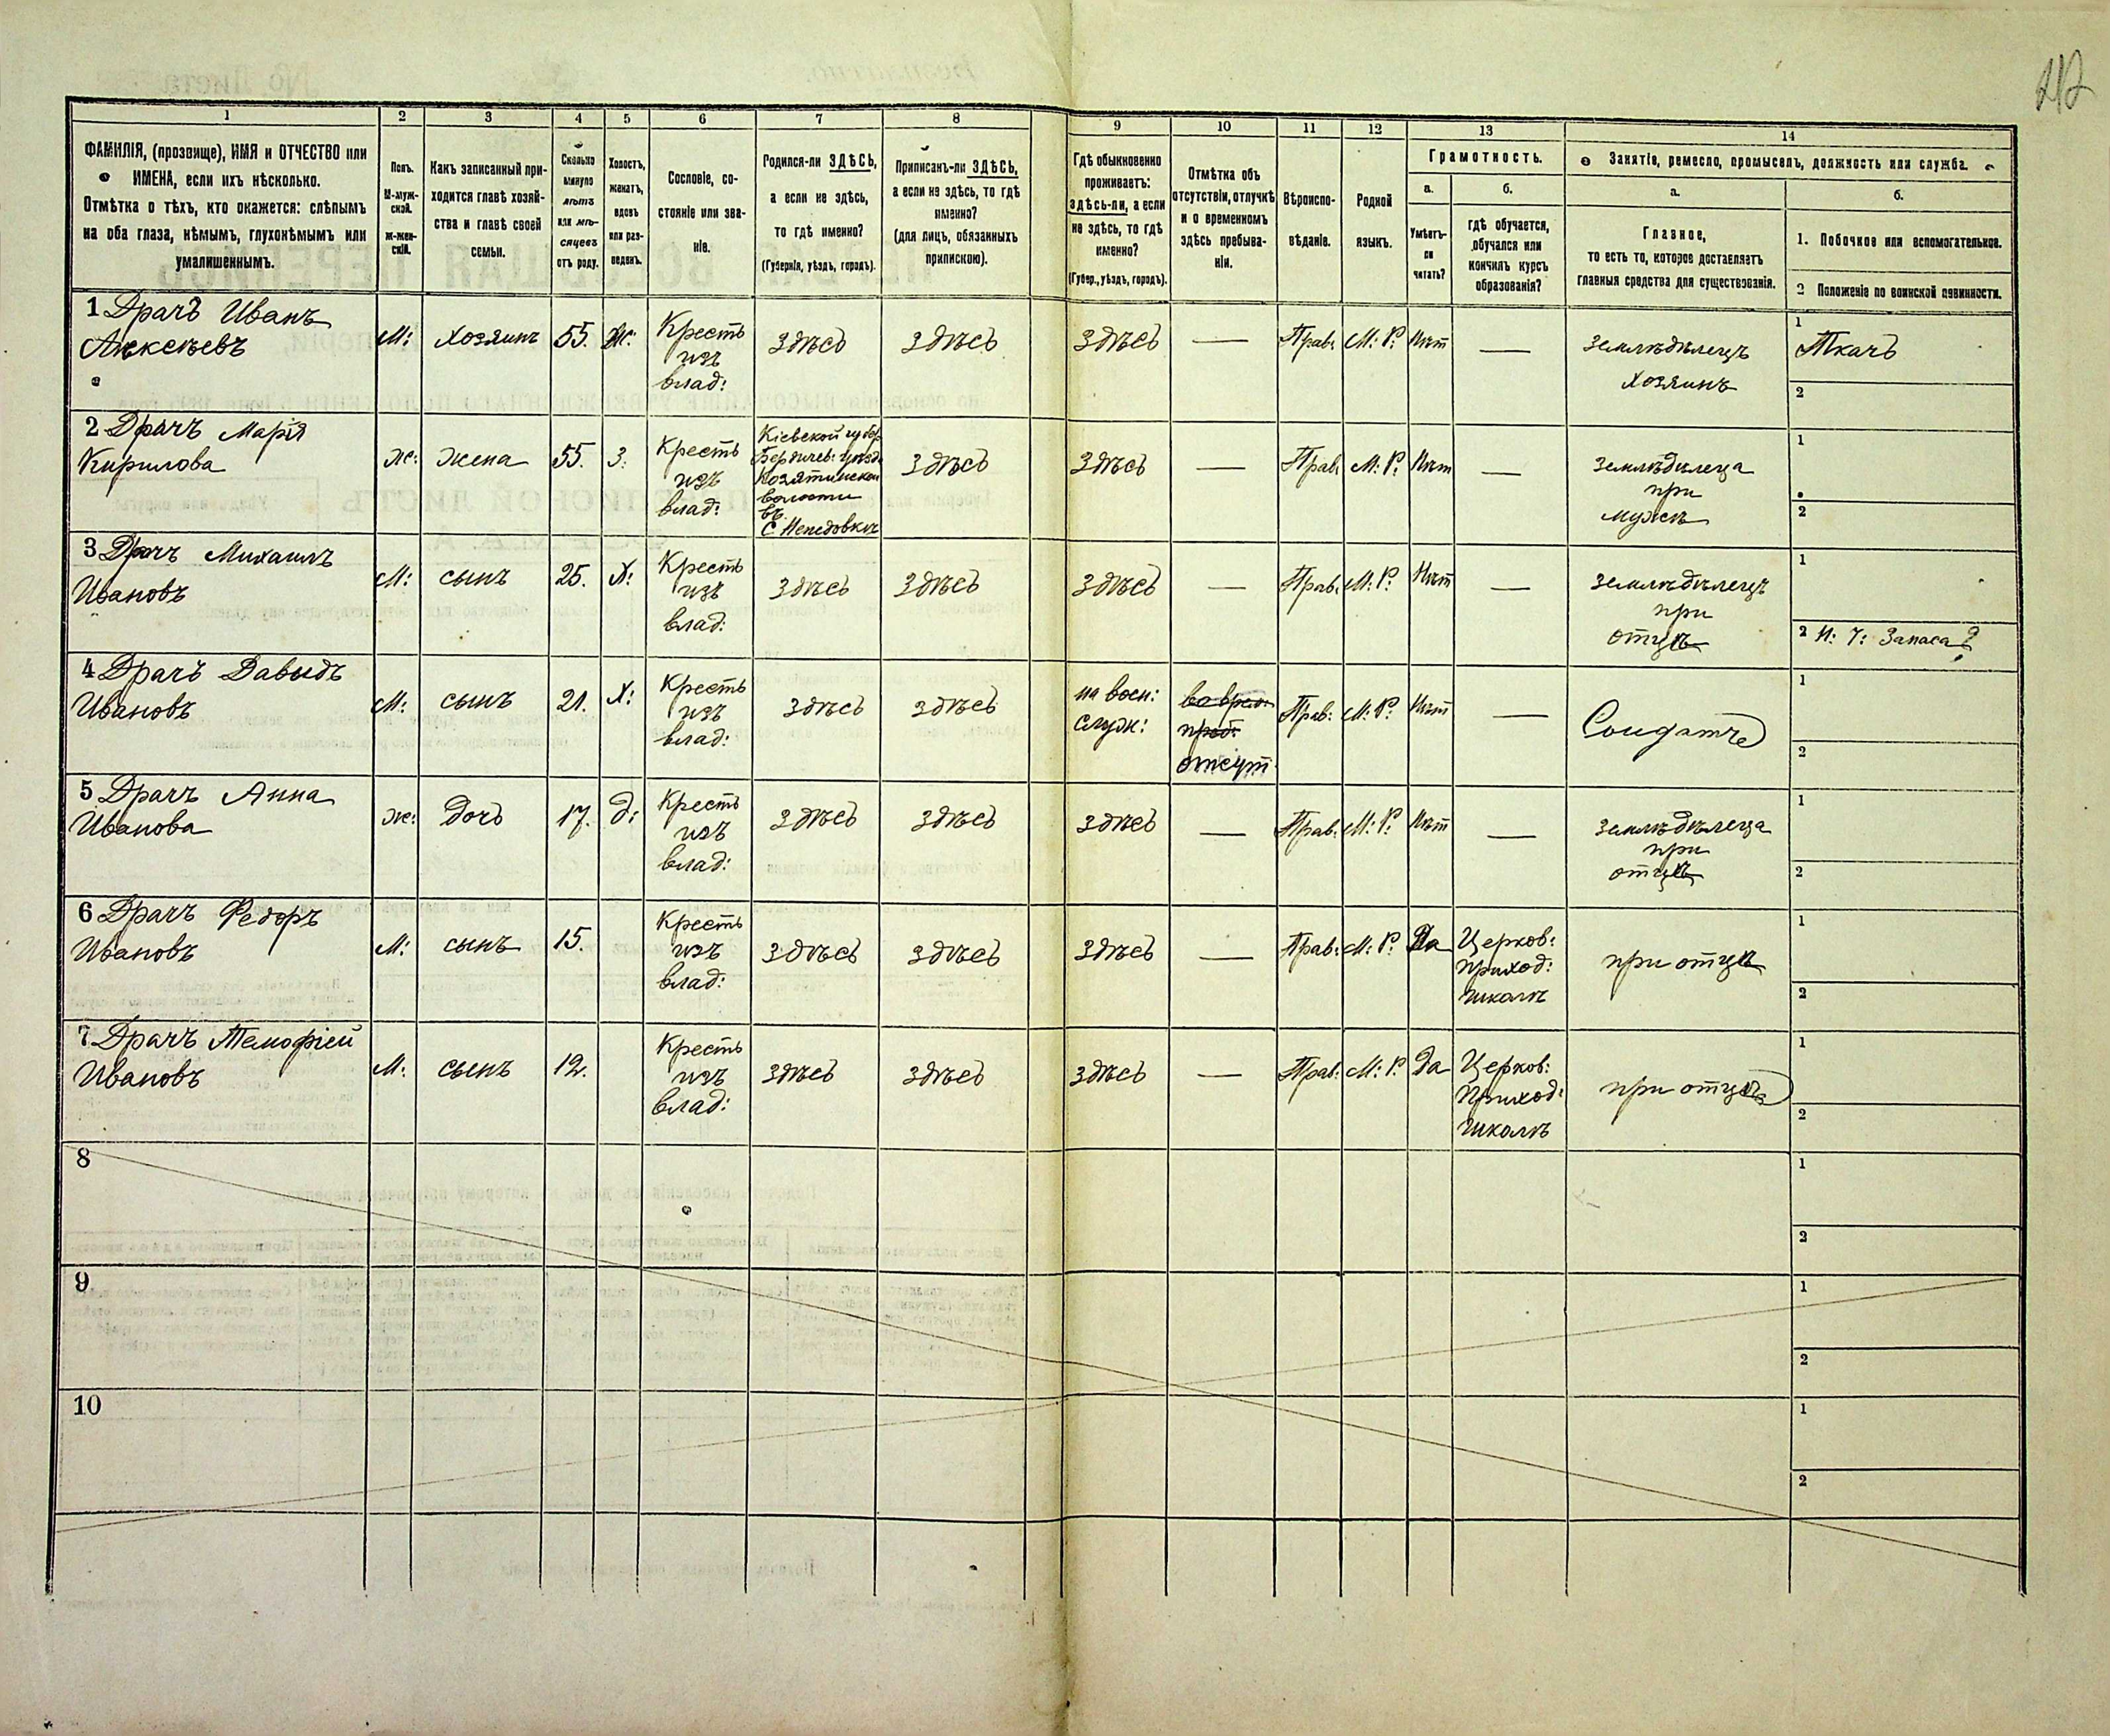 1 2 3 4 5 6 7 8 9 10 11 12 13 14
ФАМИЛІЯ, (прозвище), ИМЯ и ОТЧЕСТВО или
ИМЕНА, если ихъ нѣсколько.
Отмѣтка о тѣхъ, кто окажется: слѣпымъ
на оба глаза, нѣмымъ, глухонѣмымъ или
умалишеннымъ.
Полъ.
М-муж-
ской.
Ж-жен-
скій.
Какъ записанный при-
ходится главѣ хозяй-
ства и главѣ своей
семьи.
Сколько
минуло
лѣтъ
или мѣ-
сяцевъ
отъ роду.
Холостъ,
женатъ,
вдовъ
или раз-
веденъ.
Сословіе, со-
стояніе или зва-
ніе.
Родился-ли ЗДѢСЬ,
а если не здѣсь,
то гдѣ именно?
(Губернія, уѣздъ, городъ).
Приписанъ-ли ЗДѢСЬ,
а если не здѣсь, то гдѣ
именно?
(для лицъ, обязанныхъ
припискою).
Гдѣ обыкновенно
проживаетъ:
здѣсь-ли, а если
не здѣсь, то гдѣ
именно?
(Губер., уѣздъ, городъ).
Отмѣтка объ
отсутствіи, отлучкѣ
и о временномъ
здѣсь пребыва-
ніи.
Вѣроиспо-
вѣданіе.
Родной
языкъ.
Грамотность.
а.
Умѣетъ-
ли
читать?
б.
гдѣ обучается,
обучался или
кончилъ курсъ
образованія?
Занятіе, ремесло, промыселъ, должность или служба.
а.
Главное,
то есть то, которое доставляетъ
главныя средства для существованія.
б.
1. Побочное или вспомогательное.
2 Положеніе по воинской повинности.
1 Драчъ Иванъ
Алексѣевъ
М: хозяинъ 55. Ж:
Кресть
изъ
влад:
здѣсь здѣсь здѣсь — Прав. М: Р. Нѣт —
землѣдѣлецъ
хозяинъ
1
Ткачъ
2
2 Драчъ Марія
Кирилова
Ж: жена 55. З:
Кресть
изъ
влад:
Кіевской губер.
Бердичев: уѣзд.
Козятинской
волости
въ
С. Непедовкѣ
здѣсь здѣсь — Прав. М: Р. Нѣт —
землѣдѣлеца
при
мужѣ
1
2
3 Драчъ Михаилъ
Ивановъ
М: сынъ 25. Х:
Кресть
изъ
влад:
здѣсь здѣсь здѣсь — Прав. М: Р. Нѣт —
землѣдѣлецъ
при
отцѣ
1
2 Н: Ч: Запаса ?
4 Драчъ Давыдъ
Ивановъ
М: сынъ 21. Х:
Кресть
изъ
влад:
здѣсь здѣсь
на воен:
служ:
отсут.
Прав: М: Р. Нѣт —
Солдатъ
1
2
5 Драчъ Анна
Иванова
Ж: дочь 17. д:
Кресть
изъ
влад:
здѣсь здѣсь здѣсь — Прав: М: Р. Нѣт —
землѣдѣлеца
при
отцѣ
1
2
6 Драчъ Федоръ
Ивановъ
М: сынъ 15.
Кресть
изъ
влад:
здѣсь здѣсь здѣсь — Прав: М: Р. Да
Церков:
приход:
школѣ
при отцѣ
1
2
7 Драчъ Темофіей
Ивановъ
М: сынъ 12.
Кресть
изъ
влад:
здѣсь здѣсь здѣсь — Прав: М: Р. Да
Церков:
Приход:
школѣ
при отцѣ
1
2
8
1
2
9
1
2
10
1
2